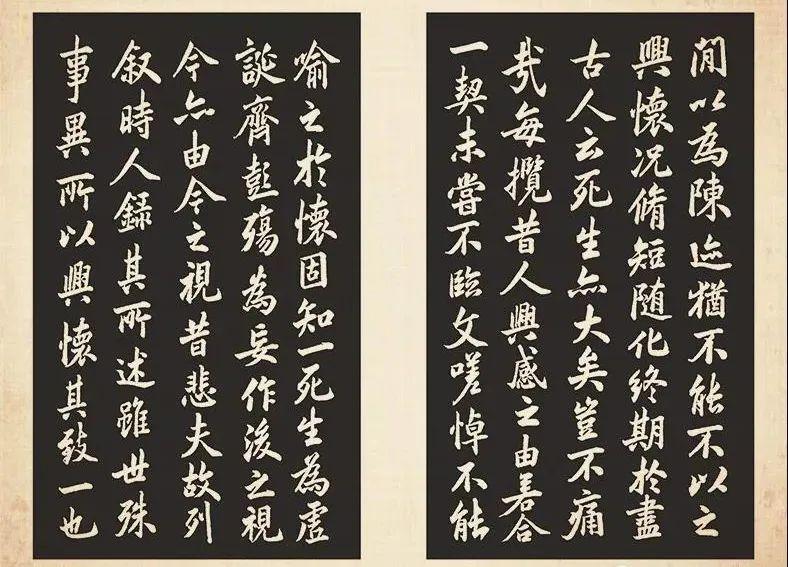 閒以為陳迹猶不能不以之
興懷况脩短随化終期於盡
古人云死生亦大矣豈不痛
哉每攬昔人興感之由若合
一契未嘗不臨文嗟悼不能
喻之於懷固知一死生為虛
誕齊彭殤為妄作後之視
今亦由今之視昔悲夫故列
叙時人録其所述雖世殊
事異所以興懷其致一也